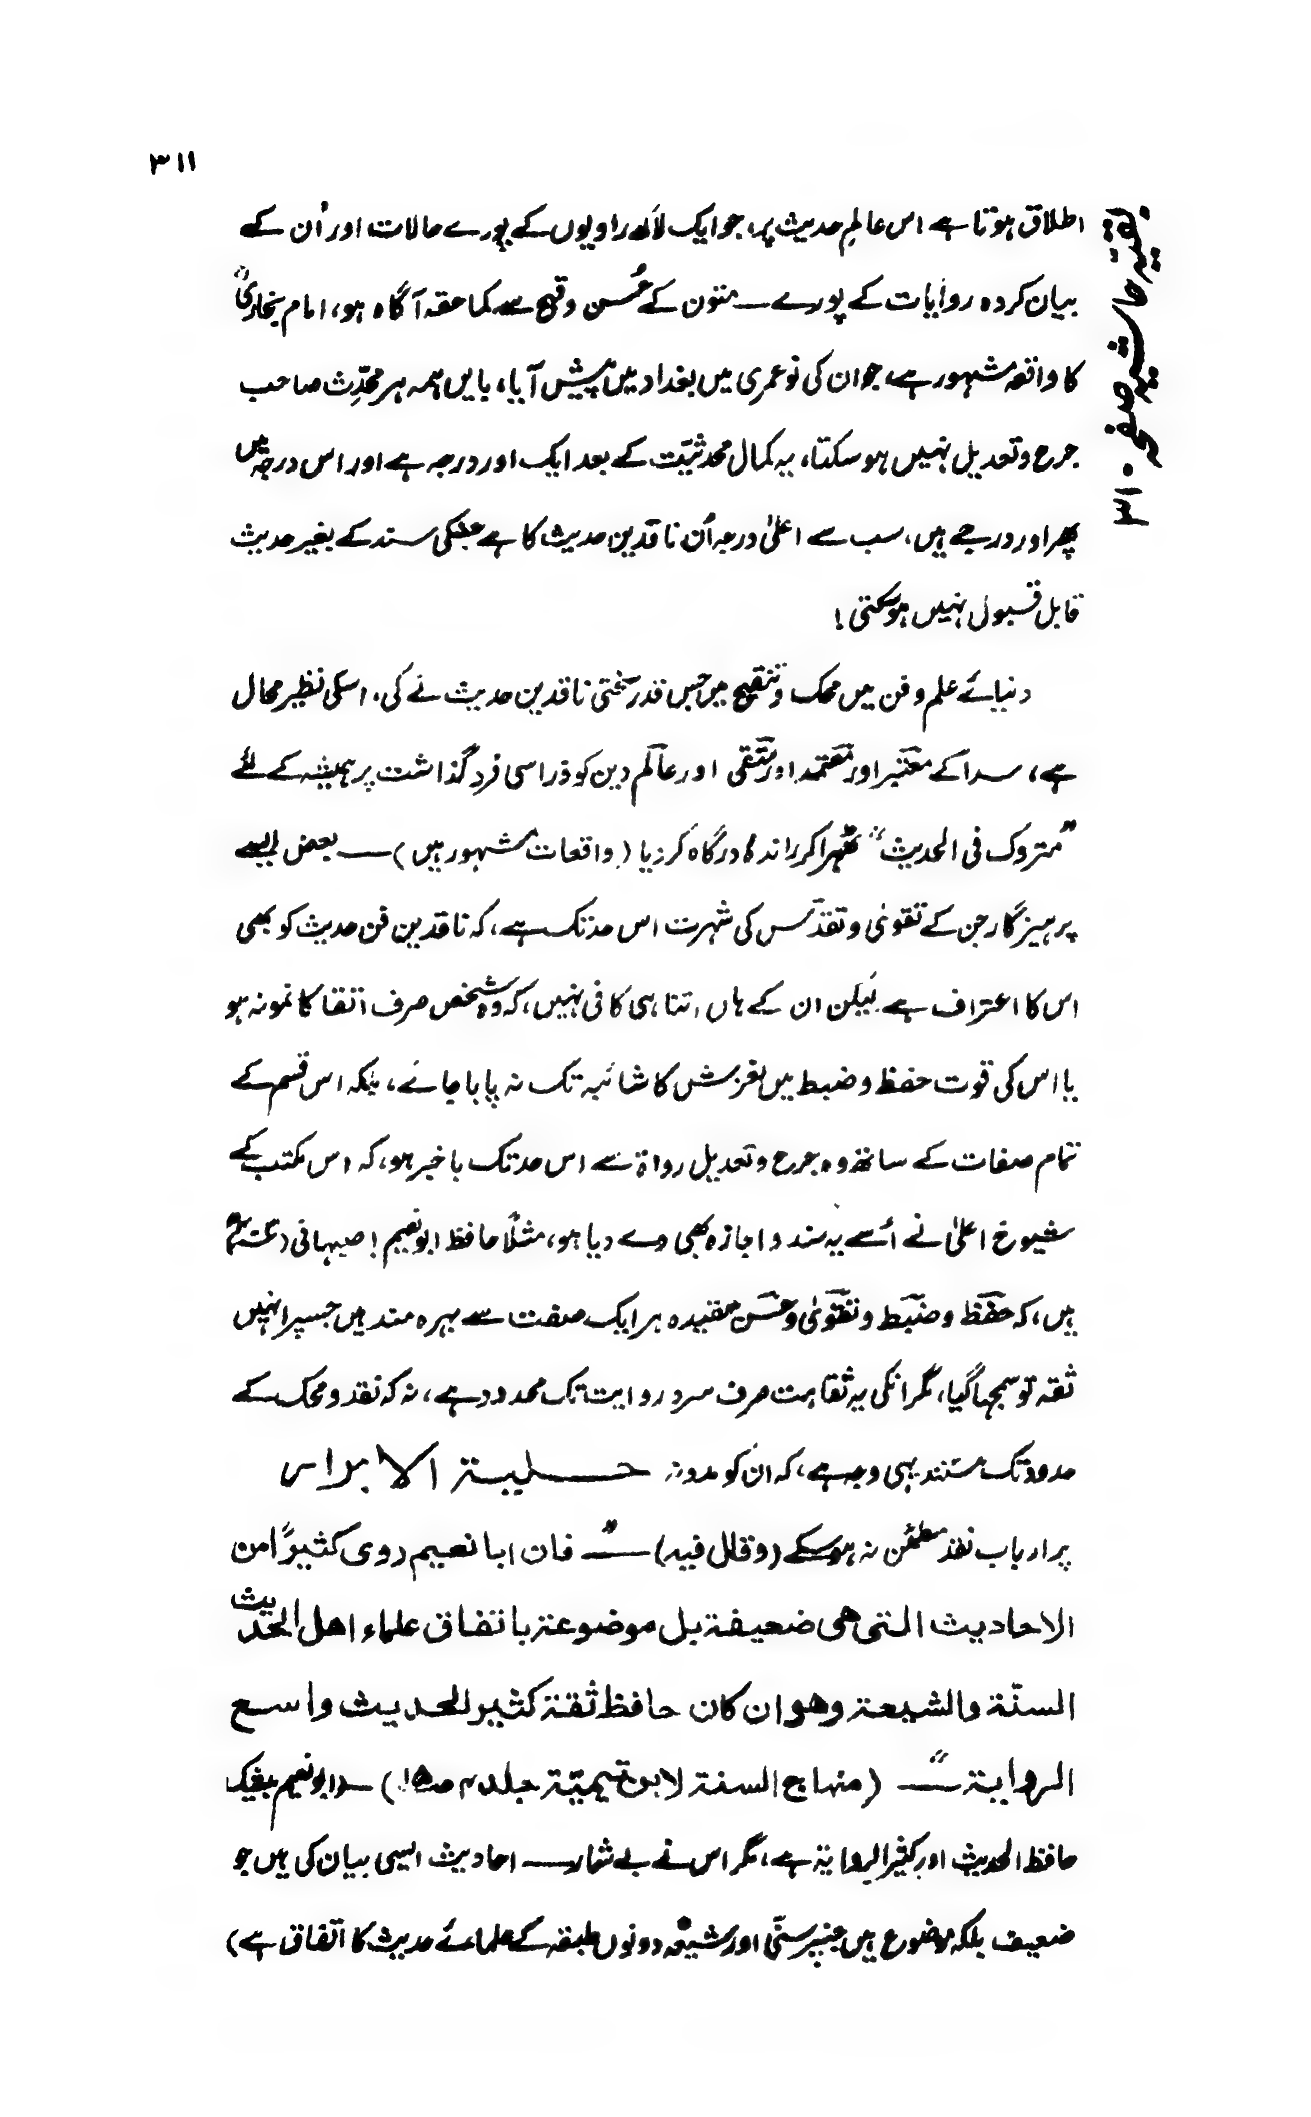 ۳۱۱
بقیہ حاشیہ صفحہ ۳۱۰
اطلاق ہوتا ہے اس عالمِ حدیث پر، جو ایک لاکھ راویوں کے پورے حالات اور اُن کے
بیان کردہ روایات کے پورے — متون کے حُسن و قبح سے کما حقہ آگاہ ہو، امام بخاریؒ
کا واقعہ مشہور ہے، جو ان کی نو عمری میں بغداد میں پیش آیا، بایں ہمہ ہر محدِّث صاحب
جرح و تعدیل نہیں ہو سکتا، یہ کمال محدثیّت کے بعد ایک اور درجہ ہے اور اس درجہ میں
پھر اور درجے ہیں، سب سے اعلیٰ درجہ اُن ناقدین حدیث کا ہے جنکی سند کے بغیر حدیث
قابل قبول نہیں ہو سکتی!
دنیائے علم و فن میں محک و تنقیح میں جس قدر سختی ناقدین حدیث نے کی، اسکی نظیر محال
ہے، سدا کے معتبر اور معتمد اور متقی اور عالم دین کو ذرا سی فرد گذاشت پر ہمیشہ کے لئے
”متروک فی الحدیث“ ٹھہرا کر راندہ درگاہ کر دیا (واقعات مشہور ہیں) — بعض ایسے
پرہیزگار جن کے تقویٰ و تقدّس کی شہرت اس حد تک ہے، کہ ناقدین فن حدیث کو بھی
اس کا اعتراف ہے لیکن ان کے ہاں اتنا ہی کافی نہیں، کہ وہ شخص صرف اتقا کا نمونہ ہو
یا اس کی قوت حفظ و ضبط میں لغزش کا شائبہ تک نہ پایا جائے، بلکہ اس قسم کے
تمام صفات کے ساتھ وہ جرح و تعدیل رواۃ سے اس حد تک باخبر ہو، کہ اس مکتب کے
شیوخ اعلیٰ نے اُسے یہ سند و اجازہ بھی دے دیا ہو، مثلًا حافظ ابو نعیم اصبہانی
ہیں، کہ حفظ و ضبط و تقویٰ و حسن عقیدہ ہر ایک صفت سے بہرہ مند ہیں جسپر انہیں
ثقہ تو سمجھا گیا، مگر انکی یہ ثقاہت صرف سرد روایت تک محدود ہے، نہ کہ نقد و محک کے
حدود تک مستند یہی وجہ ہے، کہ ان کو مدونہ حلیۃ الابرار
پر ارباب نقد مطمئن نہ ہو سکے (وقال فیہ) — ”فان ابا نعیم روی کثیرًا من
الاحادیث التی ھی ضعیفۃ بل موضوعۃ باتفاق علماء اھل الحدیث
السنّۃ والشیعۃ وھو ان کان حافظ ثقۃ کثیر الحدیث واسع
الروایۃ“ — (منھاج السنۃ لابن تیمیّۃ جلد ۴ ص۱۵) — (ابو نعیم بیشک
حافظ الحدیث اور کثیر الروایۃ ہے، مگر اس نے بے شمار — احادیث ایسی بیان کی ہیں جو
ضعیف بلکہ موضوع ہیں جنپر سنّی اور شیعہ دونوں طبقہ کے علمائے حدیث کا اتفاق ہے)